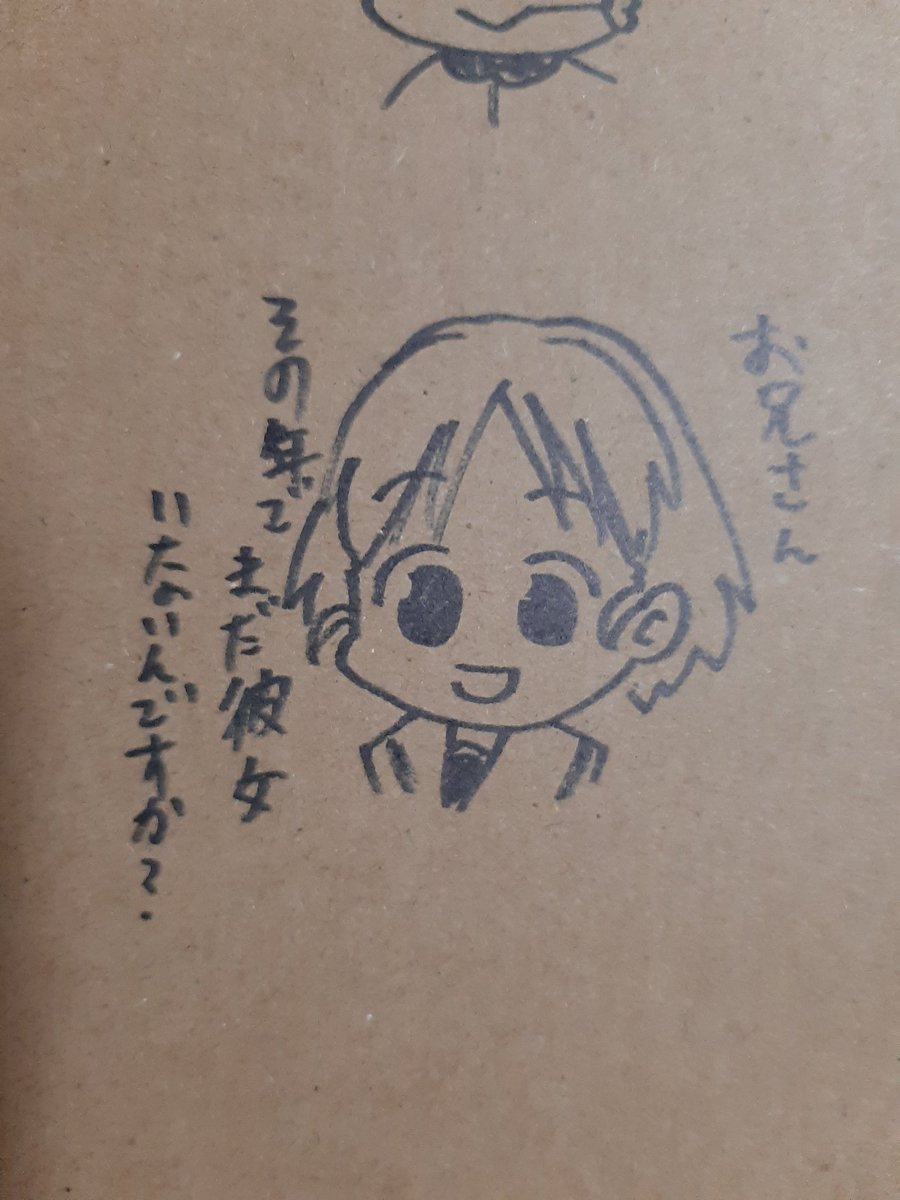 お兄さん
その年で
まだ彼女
いないんですか?